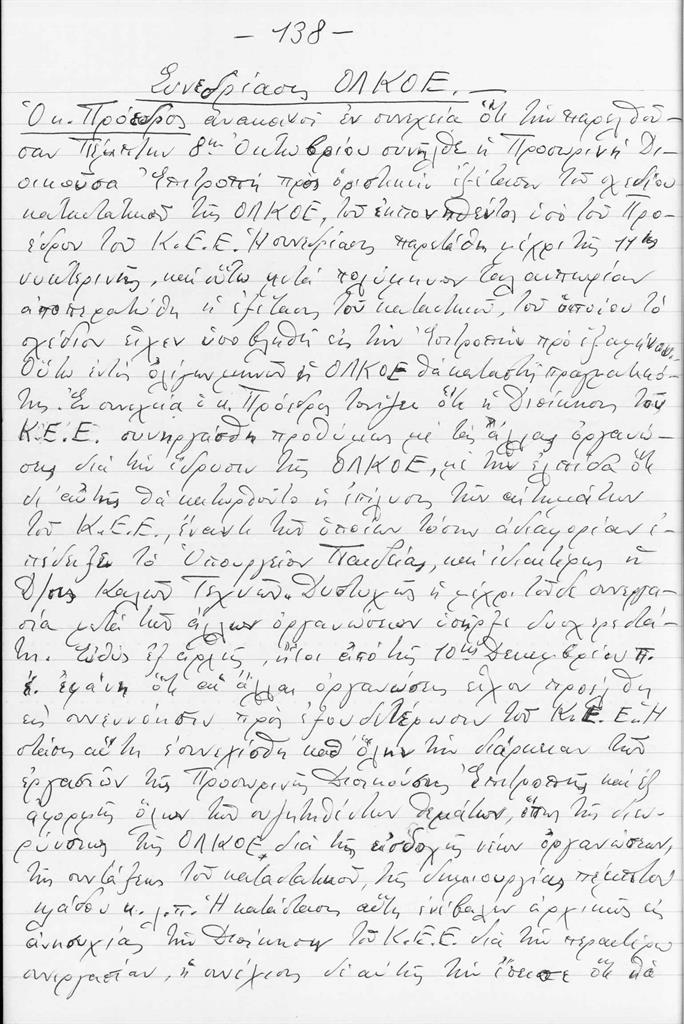 - 138 -
Συνεδρίασις ΟΛΚΟΕ. -
Ὁ κ. Πρόεδρος ἀνακοινοῖ ἐν συνεχεία ὅτι τήν παρελθοῦ-
σαν Πέμπτην 8ην Ὀκτωβρίου συνῆλθε ἡ Προσωρινή Δι-
οικοῦσα Ἐπιτροπή πρός ὁριστικήν ἐξέτασιν τοῦ σχεδίου
καταστατικοῦ τῆς ΟΛΚΟΕ, τοῦ ἐκπονηθέντος ὑπό τοῦ Προ-
έδρου τοῦ Κ.Ε.Ε. Ἡ συνεδρίασις παρετάθη μέχρι τῆς 11ης
νυκτερινῆς, καί οὕτω μετά πολύμηνον ταλαιπωρίαν
ἀπεπερατώθη ἡ ἐξέτασις τοῦ καταστικοῦ, τοῦ ὁποίου τό
σχέδιον εἶχεν ὑποβληθῆ εἰς τήν Ἐπιτροπήν πρό ἑξαμήνου.
Οὕτω ἐντός ὀλίγων μηνῶν ἡ ΟΛΚΟΕ θά καταστῆ πραγματικό-
της. Ἐν συνεχεία ὁ κ. Πρόεδρος τονίζει ὅτι ἡ Διοίκησις τοῦ
Κ.Ε.Ε. συνηργάσθη προθύμως μέ τάς ἄλλας ὀργανώ-
σεις διά τήν ἵδρυσιν τῆς ΟΛΚΟΕ, μέ τήν ἐλπίδα ὅτι
δι' αὐτῆς θά κατωρθοῦτο ἡ ἐπίλυσις τῶν αἰτημάτων
τοῦ Κ.Ε.Ε., ἔναντι τῶν ὁποίων τόσην ἀδιαφορίαν ἐ-
πέδειξε τό Ὑπουργεῖον Παιδείας, καί ἰδιαιτέρως ἡ
Δ/σις Καλῶν Τεχνῶν. Δυστυχῶς ἡ μέχρι τοῦδε συνεργα-
σία μετά τῶν ἄλλων ὀργανώσεων ὑπῆρξε δυσχερεστά-
τη. Εὐθύς ἐξ ἀρχῆς, ἤτοι ἀπό τῆς 10ης Δεκεμβρίου π.
ἔ. ἐφάνη ὅτι αἱ ἄλλαι ὀργανώσεις εἶχον προέλθη
εἰς συνεννόησιν πρός ἐξουδετέρωσιν τοῦ Κ.Ε.Ε. Ἡ
στάσις αὕτη ἐσυνεχίσθη καθ' ὅλην τήν διάρκειαν τῶν
ἐργασιῶν τῆς Προσωρινῆς Διοικούσης Ἐπιτροπῆς καί ἐξ
ἀφορμῆς ὅλων τῶν συζητηθέντων θεμάτων, ὅπως τῆς διευ-
ρύνσεως τῆς ΟΛΚΟΕ διά τῆς εἰσδοχῆς νέων ὀργανώσεων,
τῆς συντάξεως τοῦ καταστατικοῦ, τῆς δημιουργίας πέμπτου
κλάδου κ.λ.π. Ἡ κατάστασις αὕτη ἐνέβαλεν ἀρχικῶς εἰς
ἀνησυχίας τήν Διοίκησιν τοῦ Κ.Ε.Ε. διά τήν περαιτέρω
συνεργασίαν, ἡ συνέχισις δι' αὐτῆς τήν ἔπεισε ὅτι θά